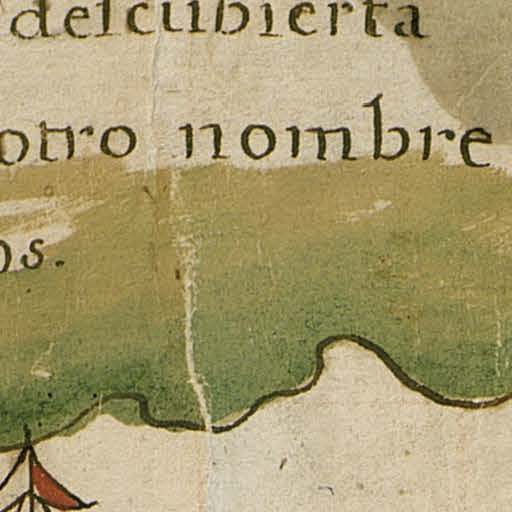 deſcubierta
otro nombre
os.